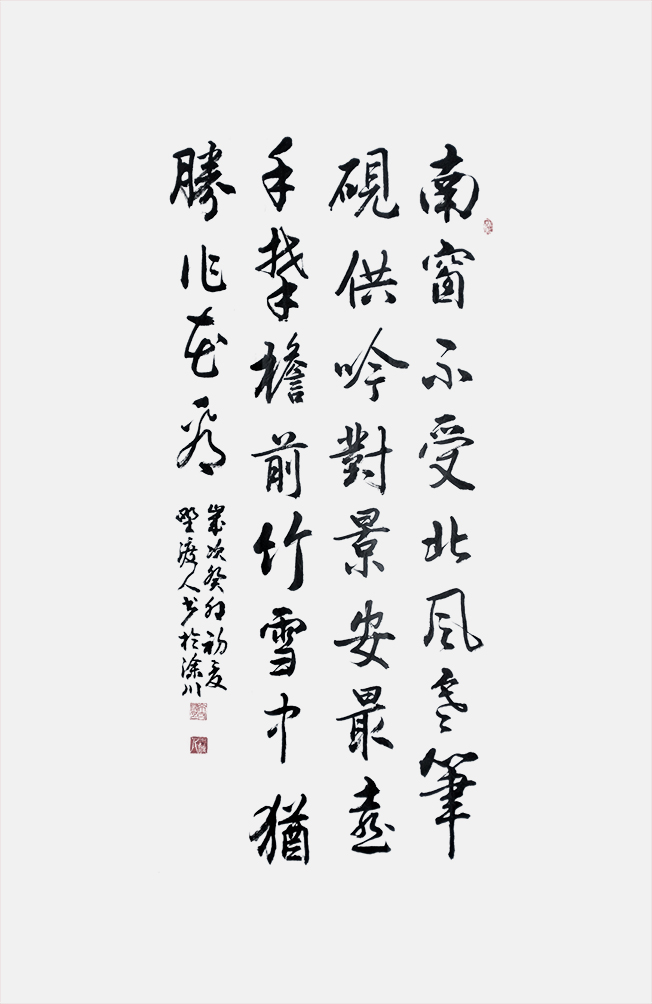 南窗不受北風寒筆
硯供吟對景安最
手檐前竹雪中猶
勝作花看
歲次癸卯初夏
野渡人書於滁川